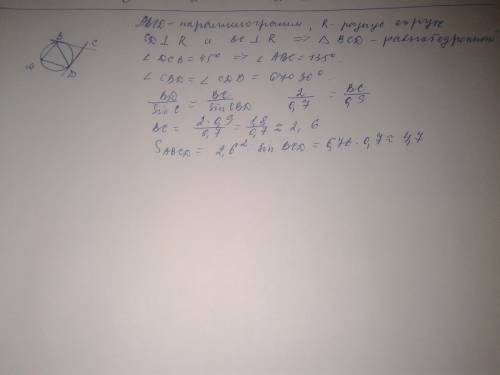 B
C
D
ABCD - параллелограмм, R - радиус окруж
CD ⊥ R и BC ⊥ R => △ BCD - равнобедренный
∠ DCB = 45° => ∠ ABC = 135°.
∠ CBD = ∠ CDB = 67°30°.
BD/Sin C = BC/Sin CBD 2/0,7 = BC/0,9
BC = 2·0,9/0,7 = 1,8/0,7 ≈ 2,6
S ABCD = 2,6² · Sin BCD = 6,76 · 0,7 ≈ 4,7